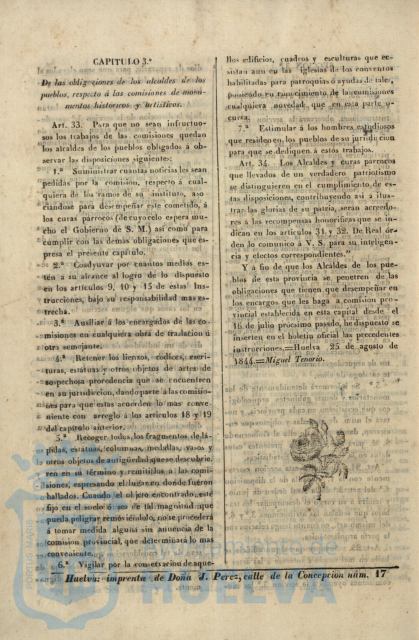 CAPITULO 3.º
De las obligaciones de los alcaldes de los
pueblos, respeto á las comisiones de monu-
mentos históricos y artisticos.
Art. 33. Para que no sean infructuo-
sos los trabajos de las comisiones quedan
los alcaldes de los pueblos obligados á ob-
servar las disposiciones siguientes:
1.ª Suministrar cuantas noticias les sean
pedidas por la comision, respecto á cual-
quiera de los ramos de su instituto, aso-
ciandose para desempeñar este cometido, á
los curas párrocos (de cuyo celo espera mu-
cho el Gobierno de S. M.) asi como para
cumplir con las demás obligaciones que es-
presa el presente capítulo.
2.ª Coadyuvar por cuantos medios es-
tén á su alcance al logro de lo dispuesto
en los artículos 9, 10 y 15 de estas Ins-
trucciones, bajo su responsabilidad mas es-
trecha.
3.ª Auxiliar á los encargados de las co-
misiones en cualquiera obra de traslacion ú
otra semejante.
4.ª Retener los lienzos, códices, escri-
turas, estatuas y otros objetos de artes de
sospechosa procedencia que se encuentren
en su jurisdiccion, dando parte á las comisio-
nes para que estas acuerden lo mas conve-
niente con arreglo á los artículos 18 y 19
del capítulo anterior.
5.ª Recoger todos los fragmentos de lá-
pidas, estatuas, columnas, medallas, vasos y
otros objetos de antigüedad que se descubrie-
ren en su término y remitirlos á las comi-
siones, espresando el lugar en donde fueron
hallados. Cuando el objeto encontrado esté
fijo en el suelo ó sea de tal magnitud que
pueda peligrar removiéndolo, no se procederá
á tomar medida alguna sin anuencia de la
comision provincial, que determinará lo mas
conveniente.
6.ª Vigilar por la conservacion de aque-
llos edificios, cuadros y esculturas que ec-
sistan aun en las iglesias de los conventos
habilitadas para parroquias ó ayudas de tales,
poniendo en conocimiento de la comisiones
cualquiera novedad que en esta parte o-
curra.
7.ª Estimular á los hombres estudiosos
que residen en los pueblos de su jurisdiccion
para que se dediquen á estos trabajos.
Art. 34. Los Alcaldes y curas párrocos
que llevados de un verdadero patriotismo
se distinguieren en el cumplimiento de es-
tas disposiciones, contribuyendo asi á ilus-
trar las glorias de su patria, serán acreedo-
res á las recompensas honoríficas que se in-
dican en los artículos 31 y 32. De Real ór-
den lo comunico á V. S. para su inteligen-
cia y efectos correspondientes."
Y á fin de que los Alcaldes de los pue-
blos de esta provincia se penetren de las
obligaciones que tienen que desempeñar en
los encargos que les haga la comision pro-
vincial establecida en esta capital desde el
16 de julio próximo pasado, he dispuesto se
inserten en el boletin oficial las precedentes
instrucciones.=Huelva 25 de agosto de
1844.=Miguel Tenorio.
Huelva: imprenta de Doña J. Perez, calle de la Concepcion núm. 17
Ayuntamiento de
HUELVA